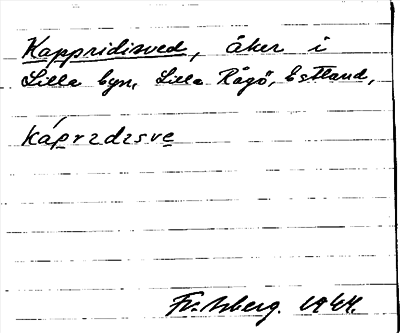 Kappridisved, åker i
Lilla byn, Lilla Rågö, Estland,
káprıdısve
1944.